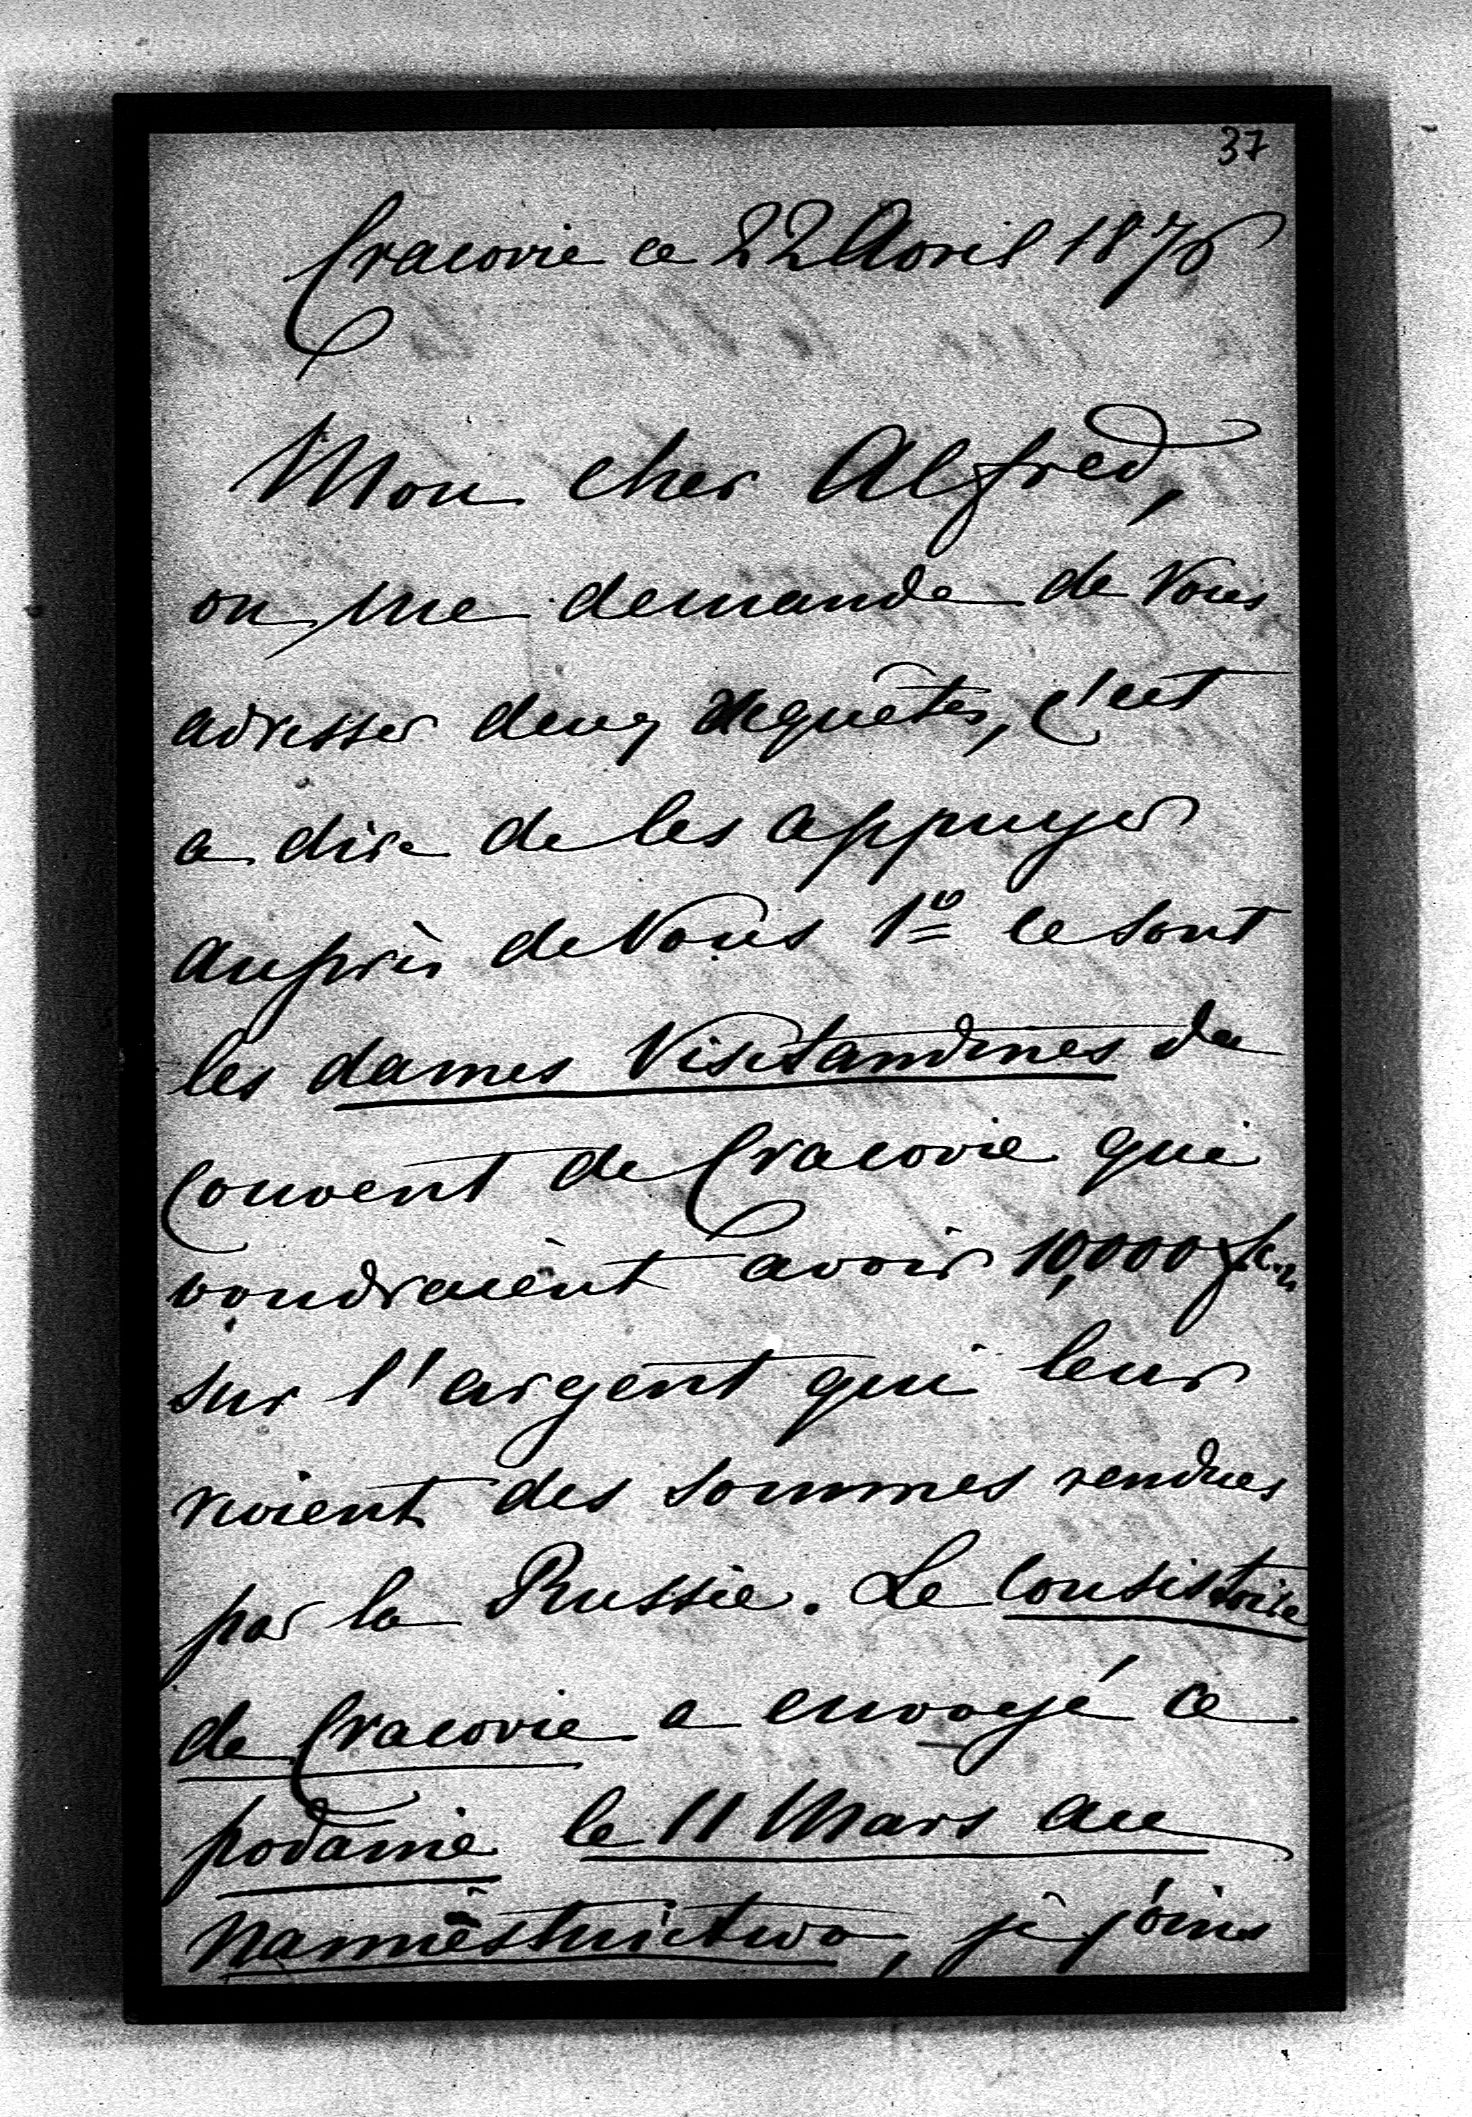 37
Cracovie ce 22 Avril 1876
Mon cher Alfred,
on me demande de Vous
adresser deux requêtes, c'est
a dire de les appuyer
auprès de Vous 1º ce sont
les dames Visitandines du
Couvent de Cracovie qui
voudraient avoir 10,000
sur l'argent qui leur
revient des sommes rendues
par la Russie. Le Consistoire
de Cracovie a envoyé ce
podanie le 11 Mars au
Namiestnictwo, je joins